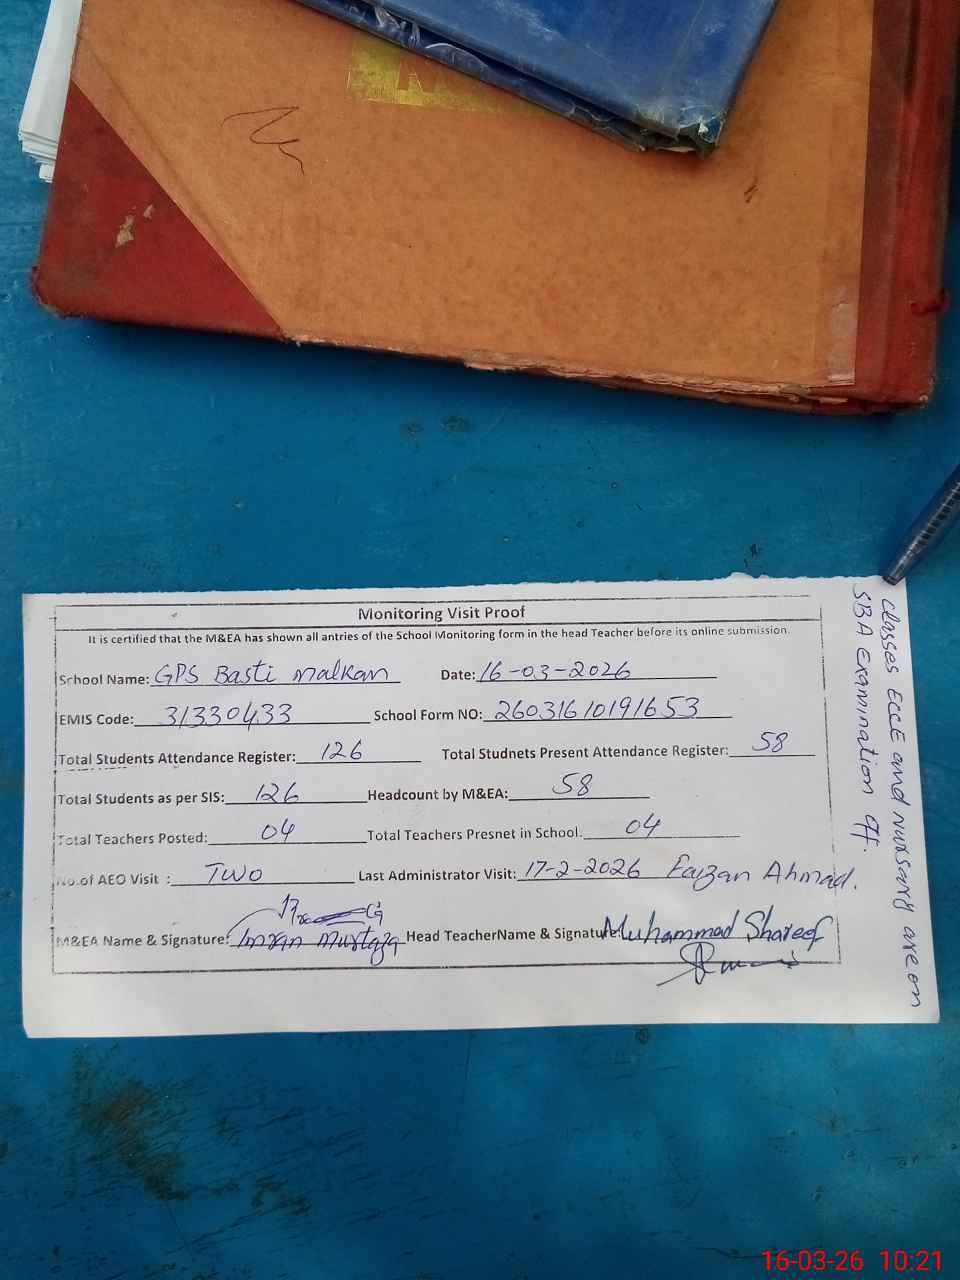 Monitoring Visit Proof
It is certified that the M&EA has shown all antries of the School Monitoring form in the head Teacher before its online submission.
School Name: GPS Basti Malkan Date: 16-03-2026
EMIS Code: 31330433 School Form NO: 26031610191653
Total Students Attendance Register: 126 Total Studnets Present Attendance Register: 58
Total Students as per SIS: 126 Headcount by M&EA: 58
Total Teachers Posted: 04 Total Teachers Presnet in School. 04
No.of AEO Visit : TWO Last Administrator Visit: 17-2-2026 Faizan Ahmad.
M&EA Name & Signature: Imran Murtaza Head TeacherName & Signature: Muhammad Shareef
Classes ECCE and Nursary are on
SBA Examination
16-03-26 10:21